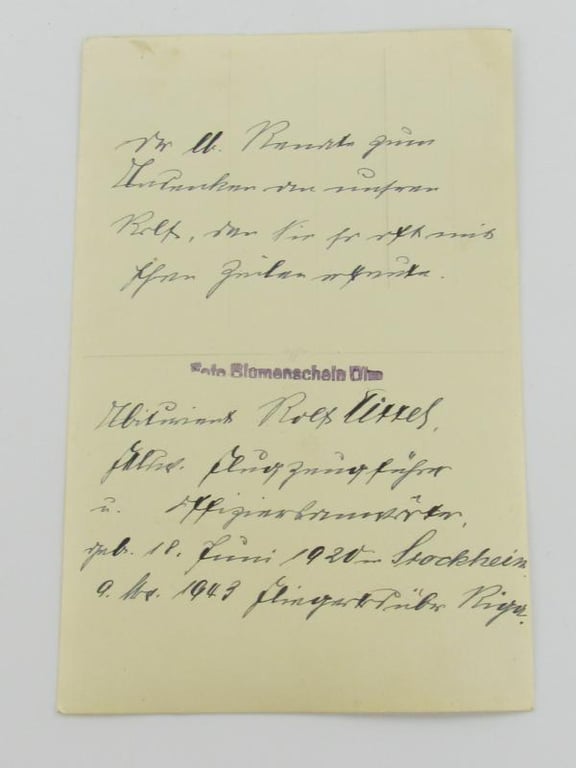 Dr lb. Renate zum
Andenken an unseren
Rolf, den Sie so oft mit
Ihren Zeilen erfreute.
Foto Blumenschein
Abiturient Rolf Tittel,
Flugzeugführer
u. Offiziersanwärter,
geb. 18. Juni 1920 in Stockheim
9. 1943 Fliegertod über Riga.